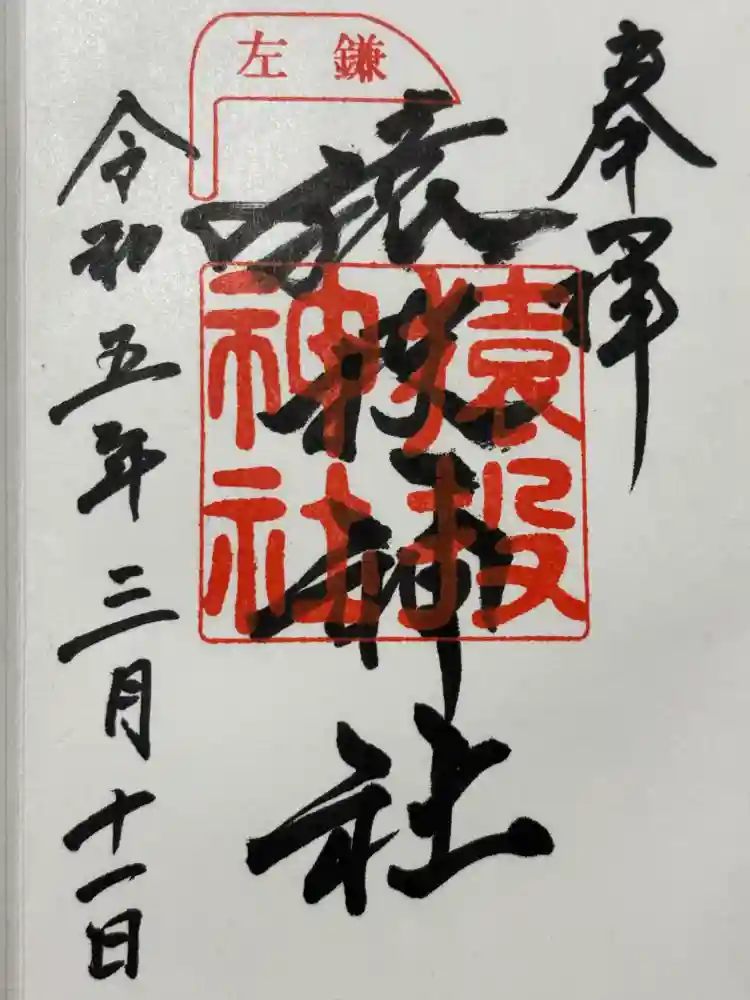 奉拝
左鎌
猿投神社
猿投
神社
令和五年三月十一日